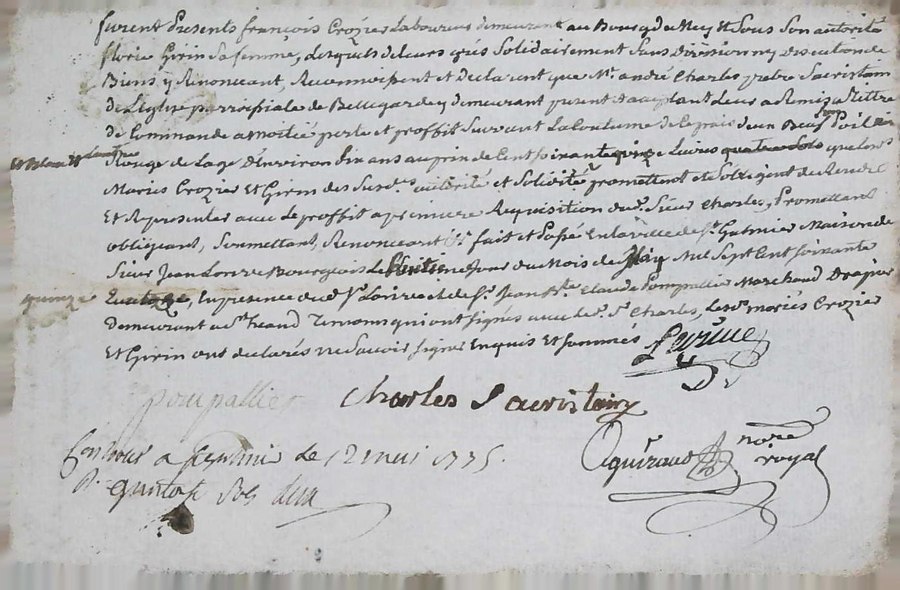 furent Presents françois Crozier Laboureur demeurant au Bourg de et Sous Son autorité
florie Girin Sa femme, Lesquels de leurs grés Solidairement Sans Division ny Discution de
Biens y Renonceant, Reconnoissent et declarent que Mr. andré Charles prêtre Sacristain
de Leglise parroissiale de Bellegarde y demeurant present et acceptant Leur a Remis a tittre
de Commande a moitié perte et proffit Suivant La Coutume de Ce païs deux Beufs Poil
et Blanc
Rouge de Lage D'environ dix ans au prix de Cent soixante quinze Livres quatre sols que Les d.
Mariés Crozier Et Girin des Susd. autorité et Solidité promettent et S'obligent de Rendre
Et Representer avec Le proffit a premiere Requisition dud. Sieur Charles, Promettant
obligeant, Soumettant, Renonceant &c. fait et Passé En La ville de St. Galmier Maison de
Sieur Jean Bourgeois Le Jour du Mois de May Mil Sept Cent Soixante
quinze
En presence dud. Sr. et de Sr. Jean Claude Pompallier Marchand Drapier
Demeurant a St. heand Temoins qui ont signés avec led. Sr. Charles, Les d. mariés Crozier
Et Girin ont declarés ne Savoir signer Enquis Et Sommés
pompallier Charles Sacristain
aguiraud nore royal
Controllé a St galmier le 12 mai 1775.
R. quatorze Sols deux